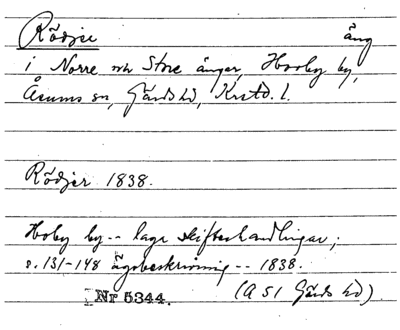 Rödjer äng
i Norre och Store ängar, Horby by,
Åsums sn, Gärds hd, Krstd. l.
Rödjer 1838.
Hoby by -- laga skifteshandlingar;
s. 131-148 ägobeskrivning -- 1838.
Nr 5344. (A 51 Gärds hd)